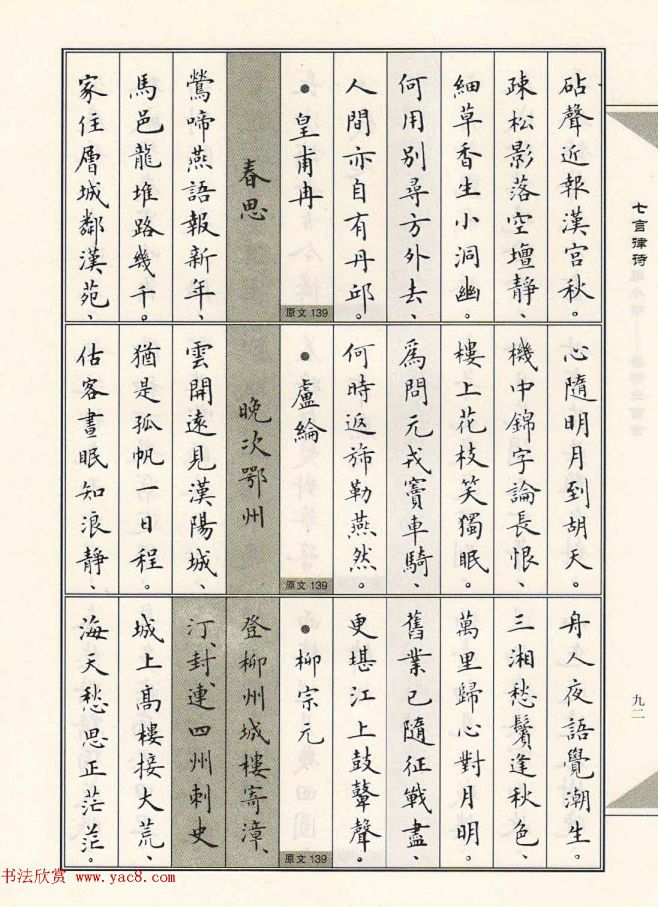 七言律诗
砧聲近報漢宮秋。
疎松影落空壇靜、
細草香生小洞幽。
何用別尋方外去、
人間亦自有丹邱。
●皇甫冉
原文139
春思
鶯啼燕語報新年、
馬邑龍堆路幾千。
家住層城鄰漢苑、
心隨明月到胡天。
機中錦字論長恨、
樓上花枝笑獨眠。
爲問元戎竇車騎、
何時返旆勒燕然。
●盧綸
原文139
晚次鄂州
雲開遠見漢陽城、
猶是孤帆一日程。
估客晝眠知浪靜、
舟人夜語覺潮生。
三湘愁鬢逢秋色、
萬里歸心對月明。
舊業已隨征戰盡、
更堪江上鼓鼙聲。
●柳宗元
原文139
登柳州城樓寄漳、
汀、封、連四州刺史
城上高樓接大荒、
海天愁思正茫茫。
九二
书法欣赏 www.yac8.com